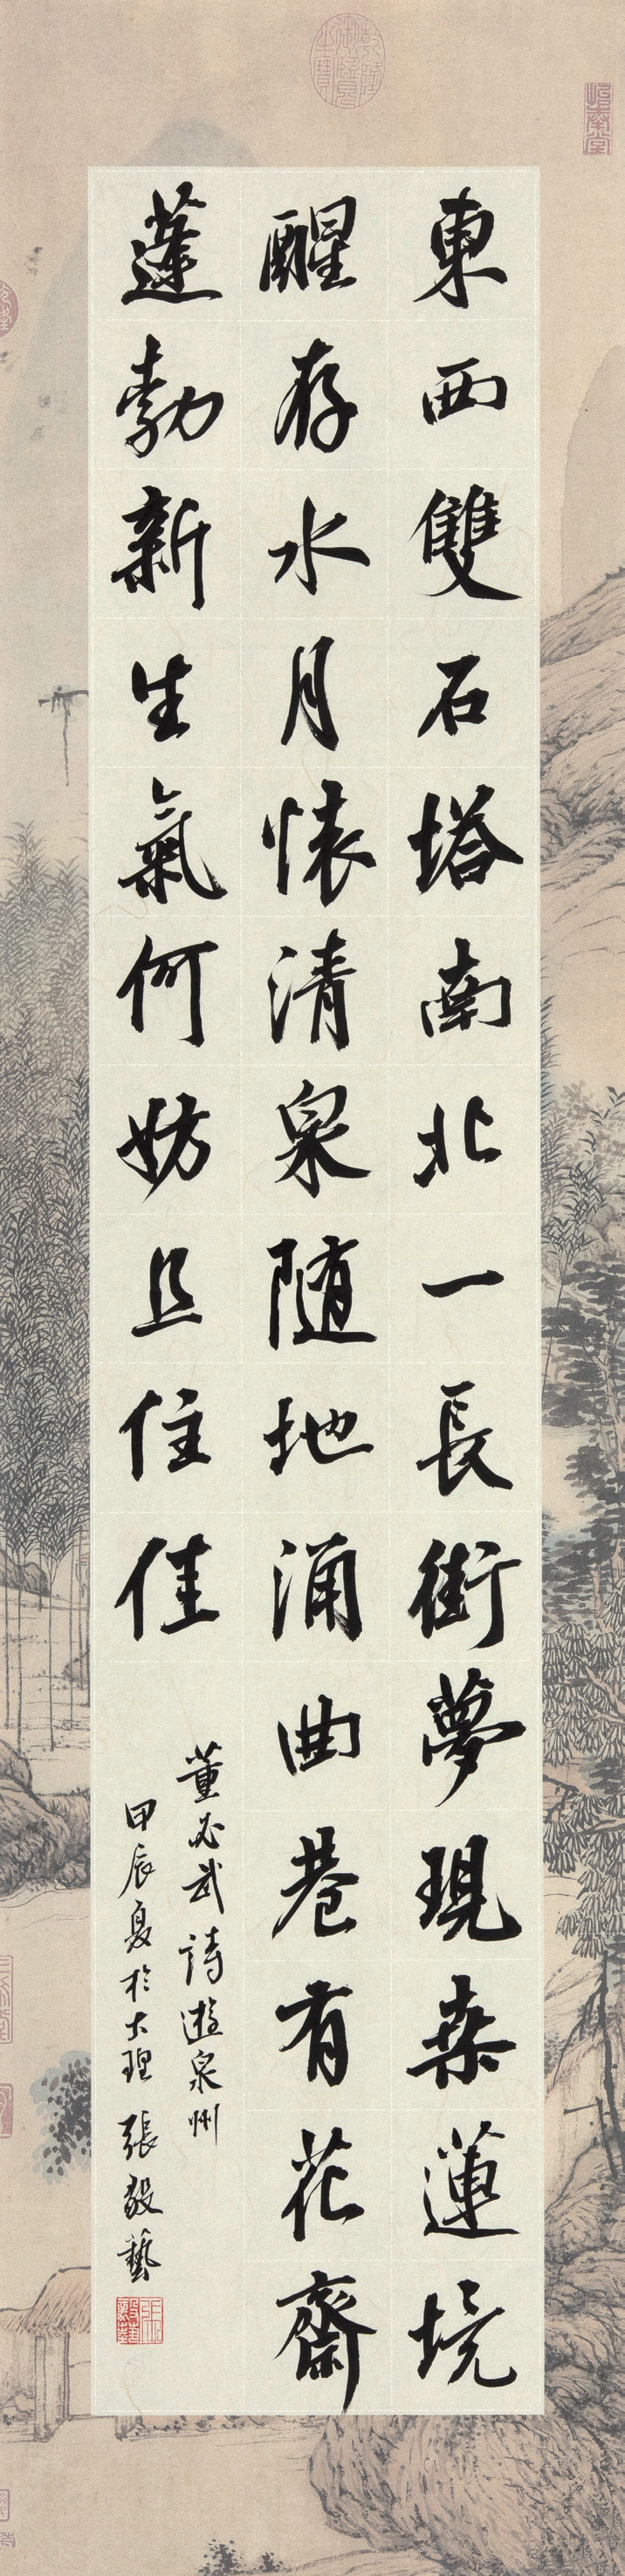 東西雙石塔南北一長街夢現桑蓮境
醒存水月懷清泉随地涌曲巷有花齋
蓬勃新生氣何妨且住佳
董必武詩遊泉州
甲辰夏於大理 張毅藝